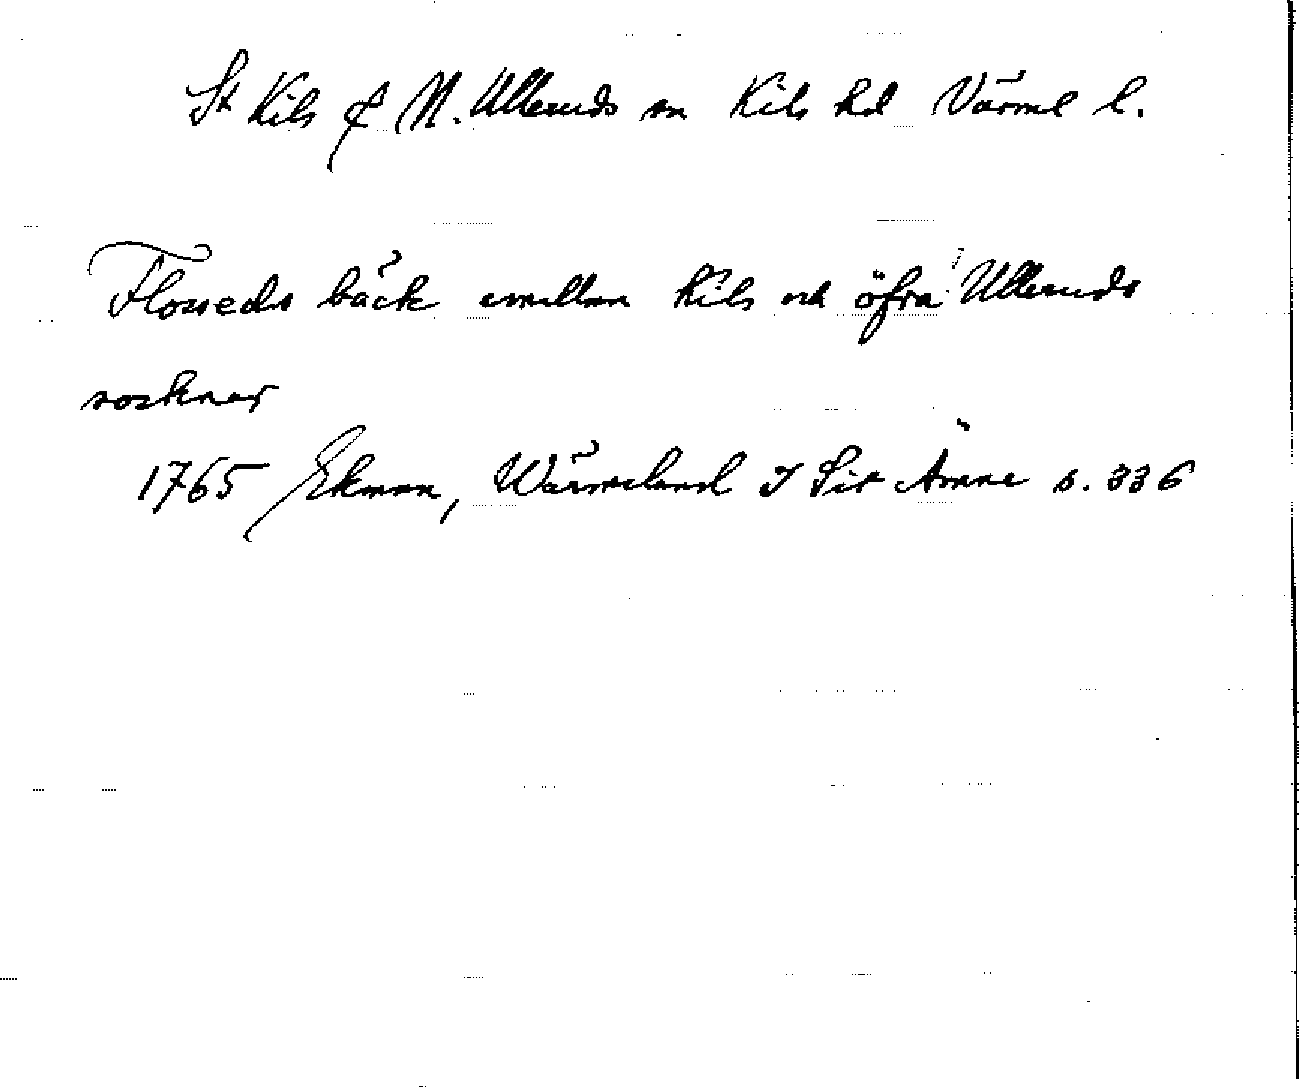 St Kils & N. Ulleruds sn Kils hd Värml l.
Flosseds bäck emellan Kils och öfra Ulleruds
socknar
1765 Ekman, Wärmeland I Sit Ämne s. 336